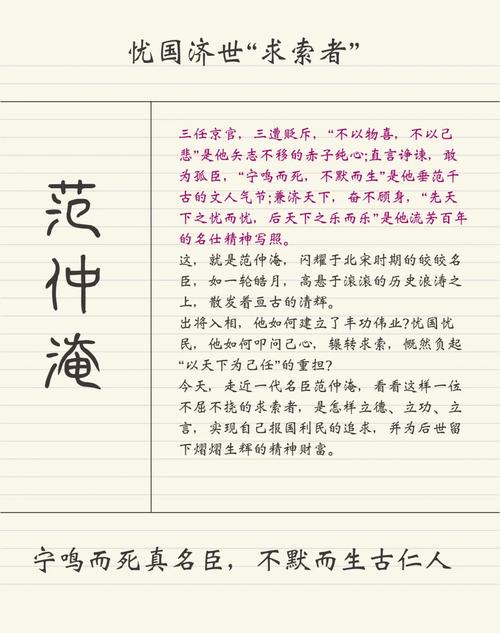 忧国济世“求索者”
范仲淹
三任京官，三遭贬斥，“不以物喜，不以己
悲”是他矢志不移的赤子纯心;直言诤谏，敢
为孤臣，“宁鸣而死，不默而生”是他垂范千
古的文人气节;兼济天下，奋不顾身，“先天
下之忧而忧，后天下之乐而乐”是他流芳百年
的名仕精神写照。
这，就是范仲淹，闪耀于北宋时期的皎皎名
臣，如一轮皓月，高悬于滚滚的历史浪涛之
上，散发着亘古的清辉。
出将入相，他如何建立了丰功伟业?忧国忧
民，他如何叩问己心，辗转求索，慨然负起
“以天下为己任”的重担?
今天，走近一代名臣范仲淹，看看这样一位
不屈不挠的求索者，是怎样立德、立功、立
言，实现自己报国利民的追求，并为后世留
下熠熠生辉的精神财富。
宁鸣而死真名臣，不默而生古仁人